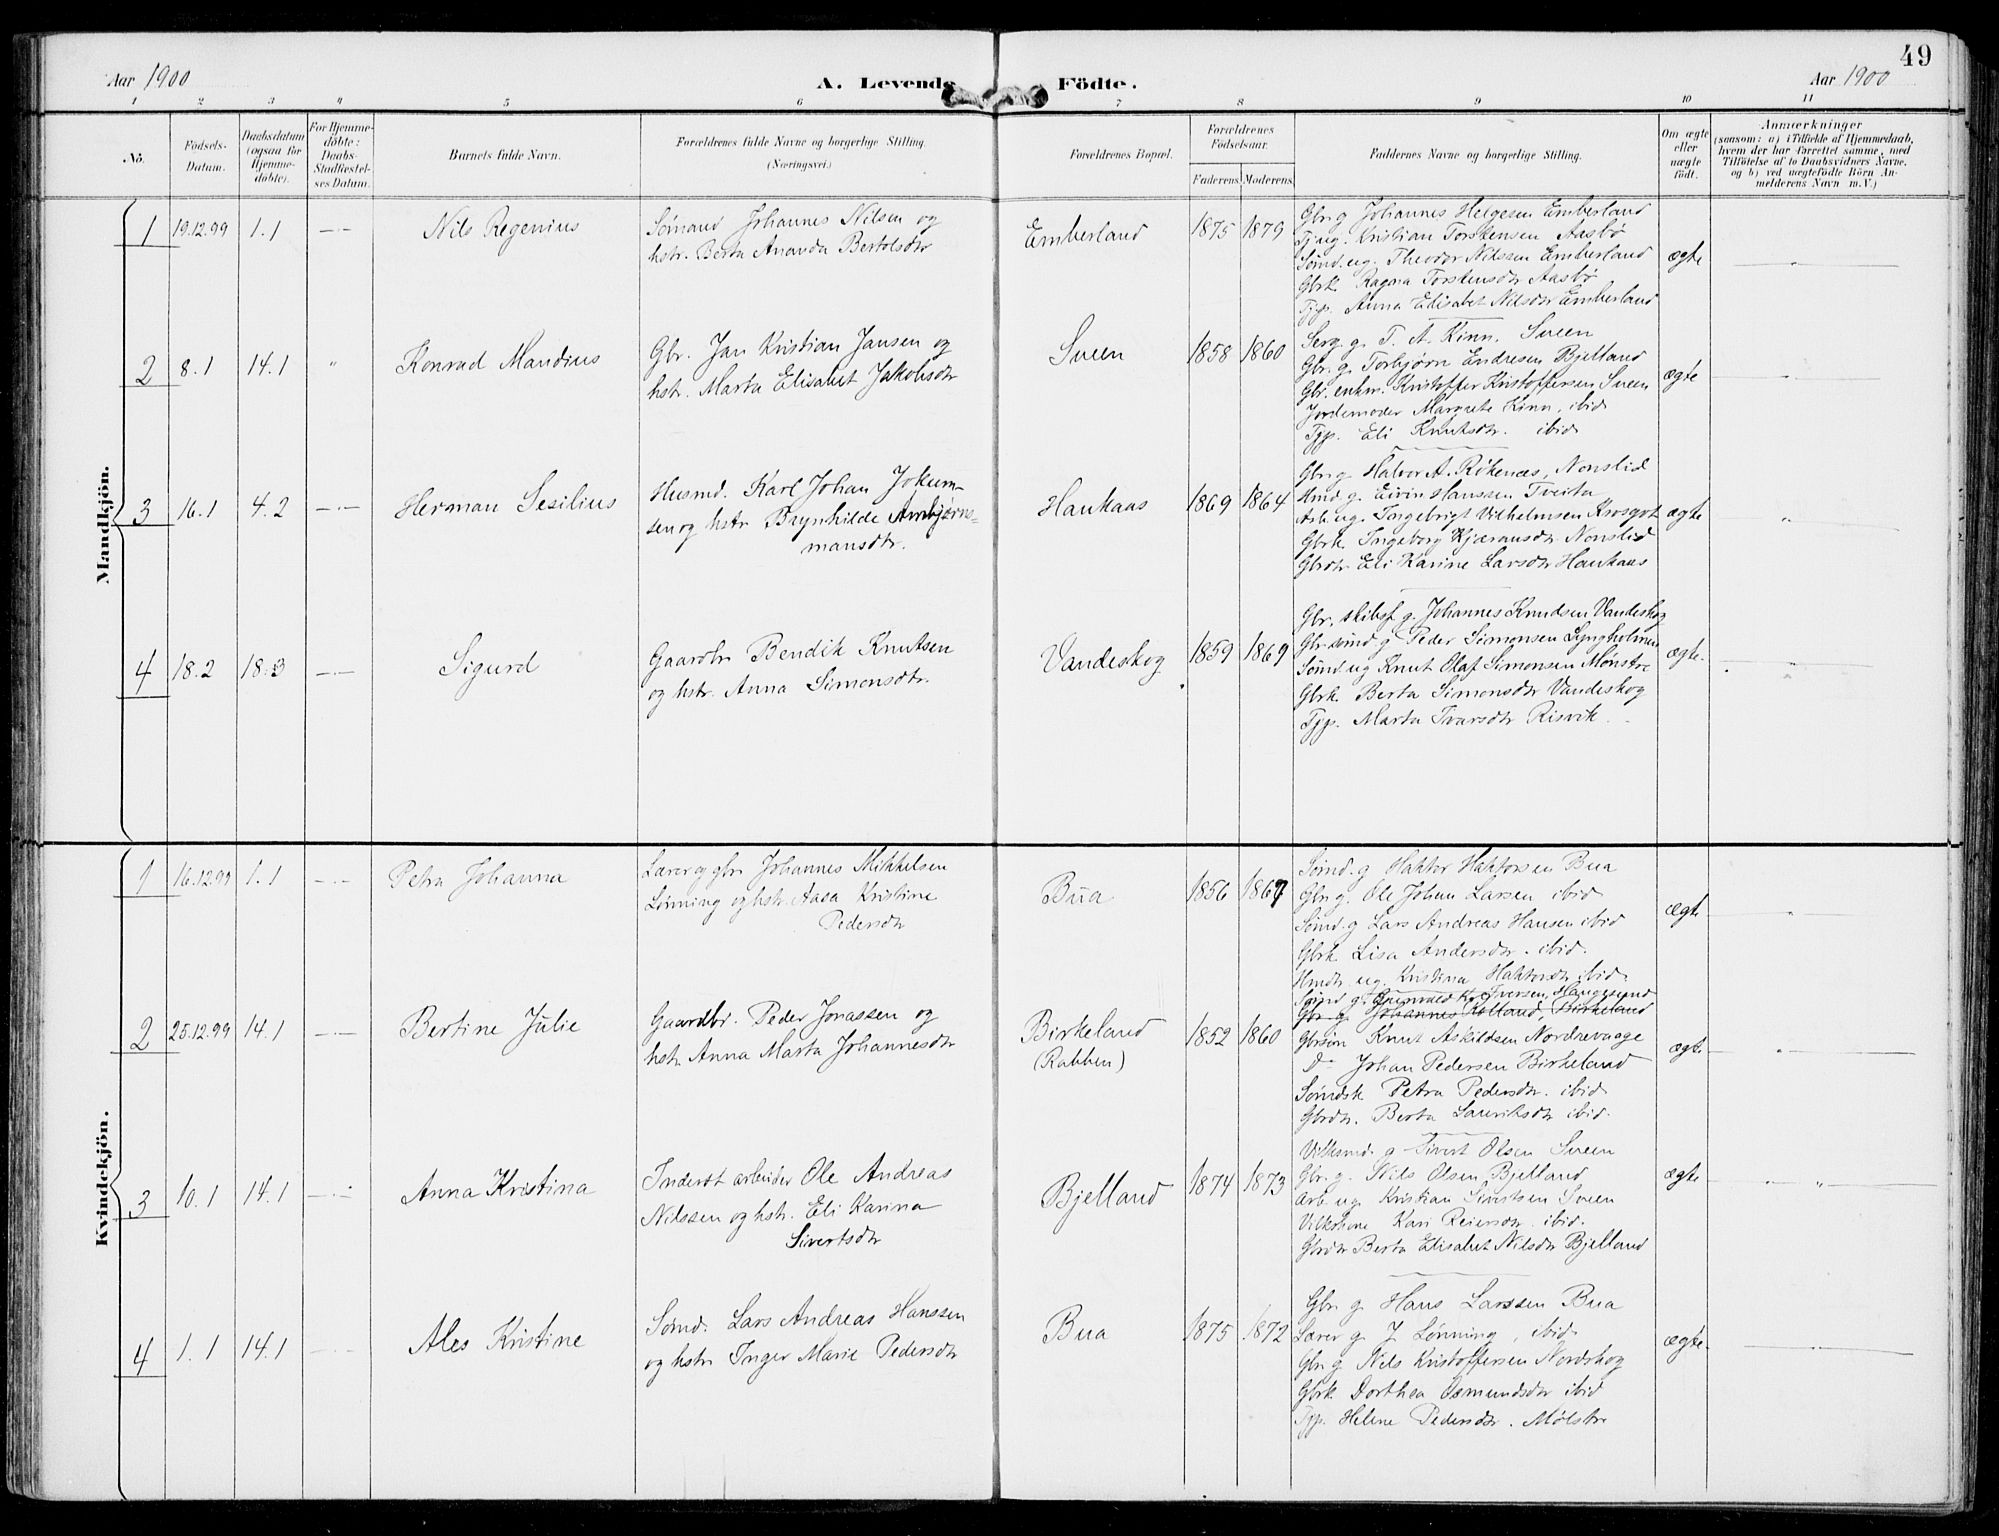 49
Aar 1900
A. Levende Födte.
Aar 1900
1 2 3 4 5 6 7 8 9 10 11
No.
Födsels-
Datum.
Daabsdatum
(ogsaa for
Hjemme-
döbte).
For Hjemme-
döbte:
Daabs-
Stadfæstel-
ses Datum.
Barnets fulde Navn.
Forældrenes fulde Navne og borgerlige Stilling.
(Næringsvei.)
Forældrenes Bopæl.
Forældrenes
Födselsaar.
Faderens. Moderens.
Faddernes Navne og borgerlige Stilling.
Om ægte
eller
uægte
födt.
Anmærkninger
(saasom: a) i Tilfælde af Hjemmedaab,
hvem der har forrettet samme, med
Tilföielse af to Daabsvidners Navne,
og b) ved uægtefödte Börn An-
melderens Navn m. V.)
Mandkjön.
1 19.12.99 1.1 Nils Regenius
Sømand Johannes Nilsen og
hstr. Berta Amanda Bertolsdtr
Emberland 1875 1879
Gbr. g Johannes Helgesen Emberland
Tj. ug. Kristian Torstensen Aasbø
Sømd. ug. Theodor Nilssen Emberland
Gbrk Ragna Torstensdtr Aasbø
Tjp. Anna Elisabet Nilsdtr Emberland
ægte
2 8.1 14.1 " Konrad Mandius
Gbr. Jan Kristian Jansen og
hstr. Marta Elisabet Jakobsdtr
Sveen 1858 1860
Serg. g. T. A. Kinn, Sveen
Gbr. g. Torbjørn Endresen Bjelland
Gbr. enkm. Kristoffer Kristoffersen Sveen
Jordemoder Margrete Kinn, ibid
Tjp. Eli Knutsdtr. ibid
ægte
3 16.1 4.2 Herman Sesilius
Husmd. Karl Johan Jokum-
sen og hstr Brynhilde Ambjørns-
mansdtr.
Haukaas 1869 1864
Gbr. g Halvor A. Røkenæs, Nonslid
Hmd g. Eivin Hanssen Tveita
Arb. ug. Ingebrigt Vilhelmsen
Gbrk. Ingeborg Kjæransdtr Nonslid
Gbrdtr Eli Karine Larsdtr Haukaas
ægte
4 18.2 18.3 Sigurd
Gaardbr Bendik Knutsen
og hstr. Anna Simonsdtr.
Vandeskog 1859 1869
Gbr. skibsf g. Johannes Knudsen Vandeskog
Gbr. sømd g Peder Simonsen Lyngholmen
Sømd ug Knut Olaf Simonsen Mønstre
Gbrk Berta Simonsdtr Vandeskog
Tjp. Marta Ivarsdtr Risvik.
ægte.
Kvindekjön.
1 16.12.99 1.1 Petra Johanna
Lærer og gbr. Johannes Mikkelsen
Lønning og hstr. Aasa Kristine
Pedersdtr
Bua 1856 1867
Sømd. g Haktor Haktorsen Bua
Gbr. g. Ole Johan Larsen ibid
Sømd. g Lars Andreas Hansen ibid
Gbrk Lisa Andersdtr. ibid.
Hmdtr ug. Kristina Haktorsdtr ibid.
ægte
2 25.12.99 14.1 Bertine Julie
Gaardbr. Peder Jonassen og
hstr Anna Marta Johannesdtr
Birkeland
(Rabben)
1852 1860
Iversen, Haugesund
Gbr. g. Johannes Kolland, Birkeland
Gbrsøn Knut Askildsen Nordrevaage
Do Johan Pedersen Birkeland
Sømdsk Petra Pedersdtr. ibid
Gbrdtr. Berta Lauriksdtr ibid.
ægte
3 10.1 14.1 Anna Kristina
Inderst arbeider Ole Andreas
Nilssen og hstr. Eli Karina
Sivertsdtr
Bjelland 1874 1873
g Sivert Olsen Sveen
Gbr. g. Nils Olsen Bjelland
Arb ug. Kristian Sivertsen Sveen
Kari Reiersdtr. ibid.
Gbrdtr Berta Elisabet Nilsdtr Bjelland
ægte
4 1.1 14.1 Ales Kristine
Sømd. Lars Andreas Hanssen
og hstr Inger Marie Pedersdtr
Bua 1875 1872
Gbr. g. Hans Larssen Bua
Lærer g. J. Lønning, ibid.
Gbr. g. Nils Kristoffersen Nordskog
Gbrk Dorthea Osmundsdtr ibid
Tjp. Helene Pedersdtr. Mølstre
ægte.